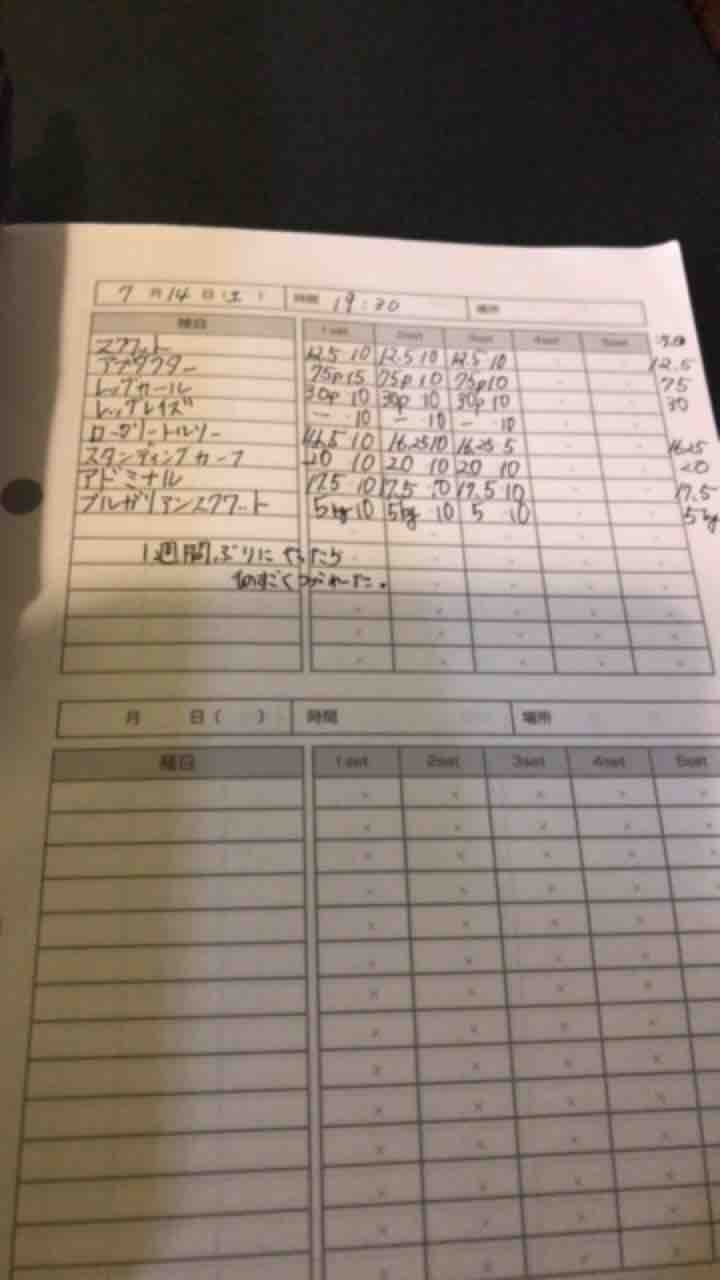 7 月 14 日 (土) 時間 19:30 場所
種目 1set 2set 3set 4set 5set 次回
スクワット 12.5 10 12.5 10 12.5 10 12.5
アブダクター 75p 15 75p 10 75p 10 75
レッグカール 30p 10 30p 10 30p 10 30
レッグレイズ — 10 — 10 — 10
ロータリートルソー 10 16.25 10 16.25 5 16.25
スタンディングカーフ 20 10 20 10 20 10 20
アブドミナル 17.5 10 17.5 10 17.5 10 17.5
ブルガリアンスクワット 5kg 10 5kg 10 5 10 5kg
1週間ぶりにやったら
ものすごくつかれた。
月 日( ) 時間 場所
種目 1set 2set 3set 4set 5set